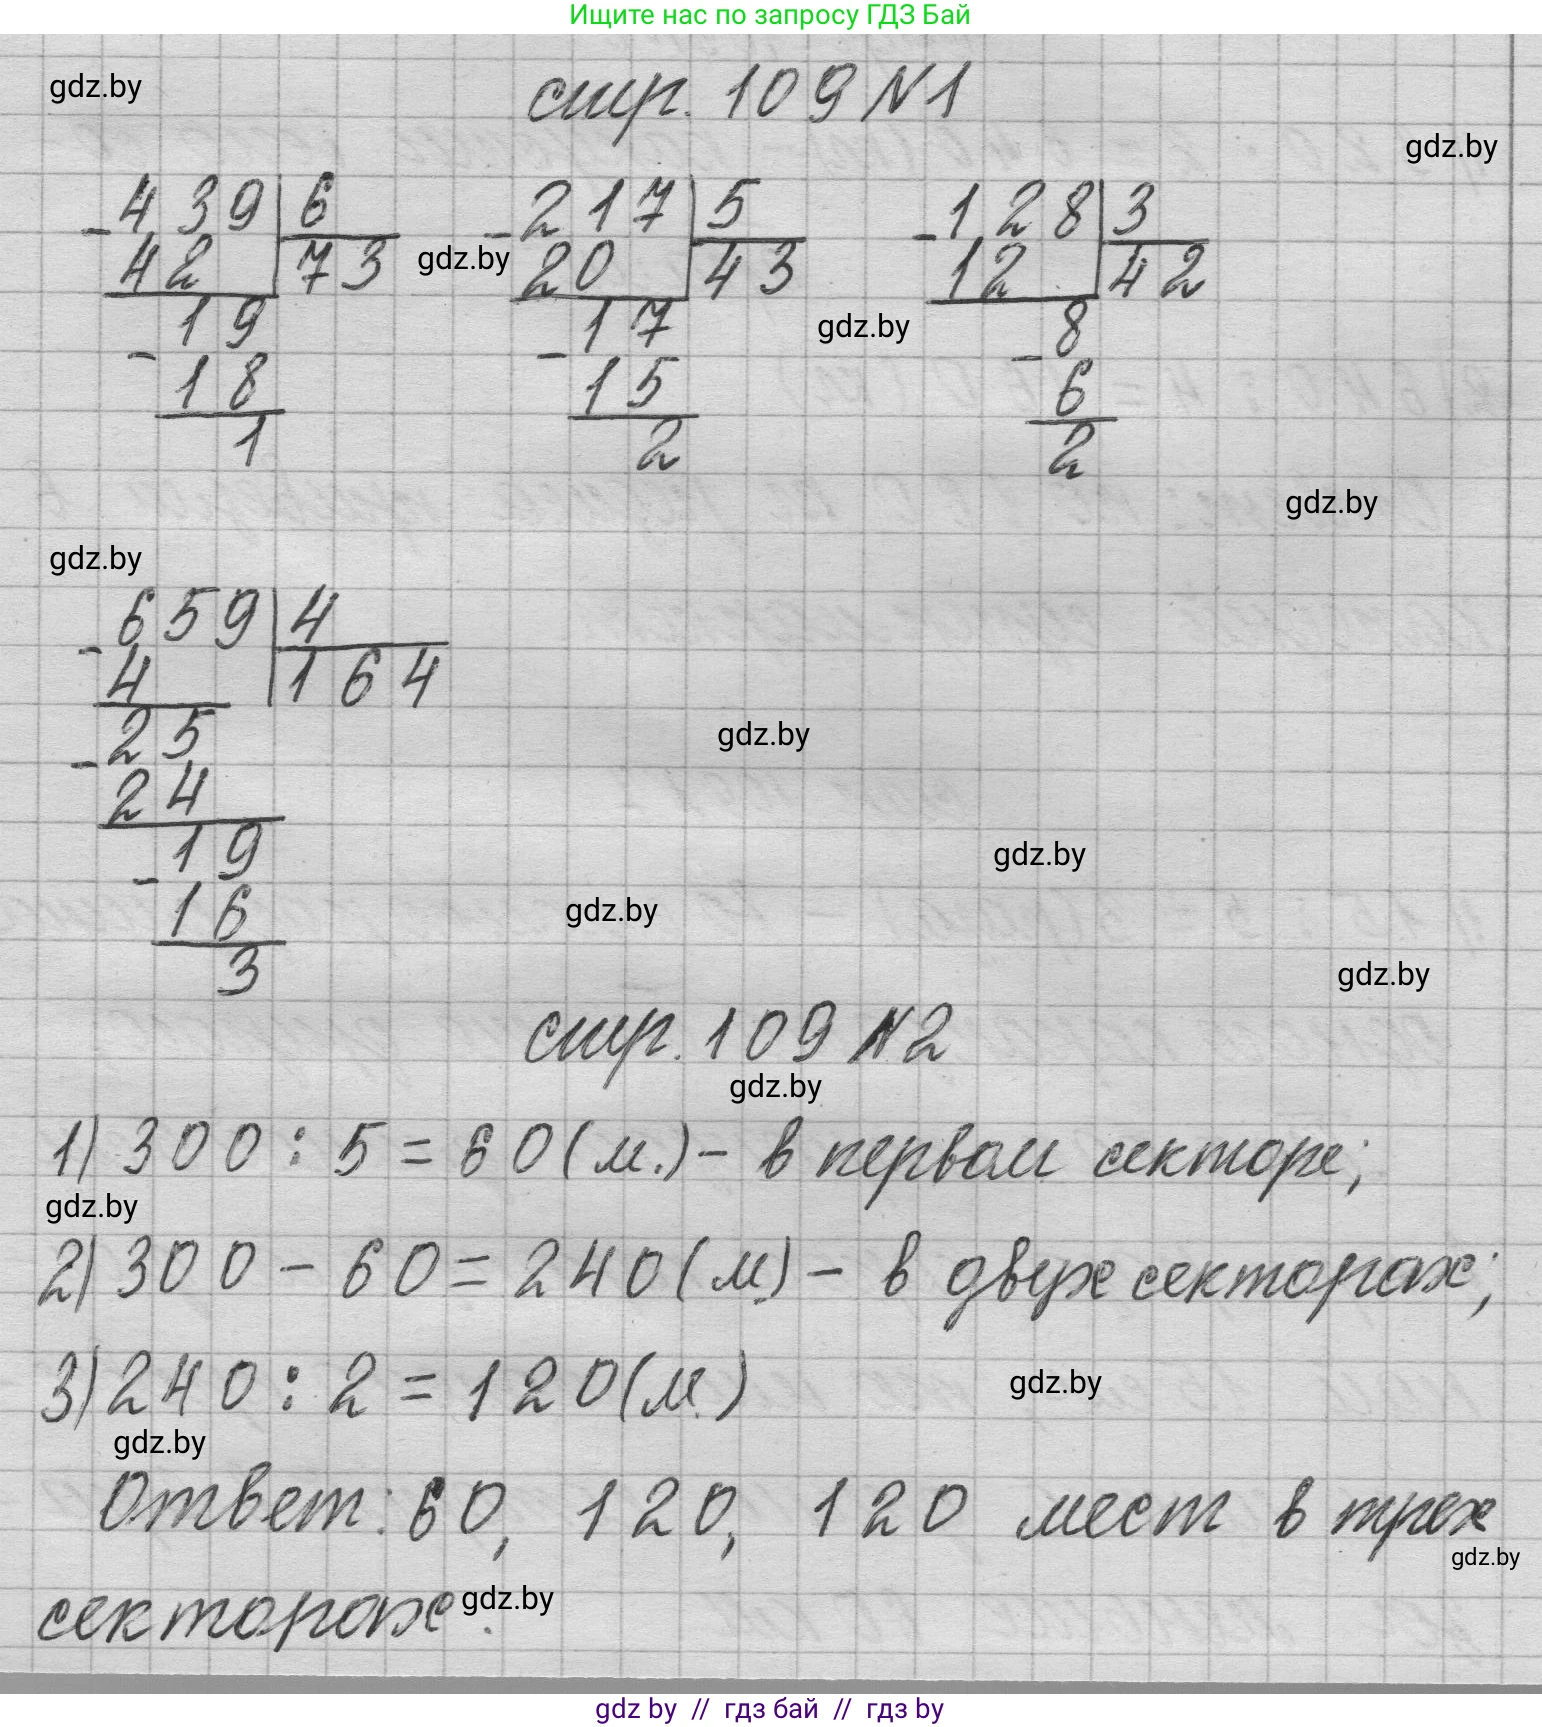 Ищите нас по запросу ГДЗ Бай
gdz.by
стр. 109 №1
gdz.by
- 439 | 6
42 | 73
19
- 18
1
gdz.by
- 217 | 5
20 | 43
17
- 15
2
gdz.by
- 128 | 3
12 | 42
8
- 6
2
gdz.by
gdz.by
- 659 | 4
4 | 164
- 25
24
19
- 16
3
gdz.by
gdz.by
gdz.by
gdz.by
стр. 109 №2
gdz.by
1) 300 : 5 = 60 (м.) - в первом секторе;
gdz.by
2) 300 - 60 = 240 (м.) - в двух секторах;
3) 240 : 2 = 120 (м.)
gdz.by
gdz.by
Ответ: 60, 120, 120 мест в трех
gdz.by
секторах.
gdz.by
gdz by // гдз бай // гдз by